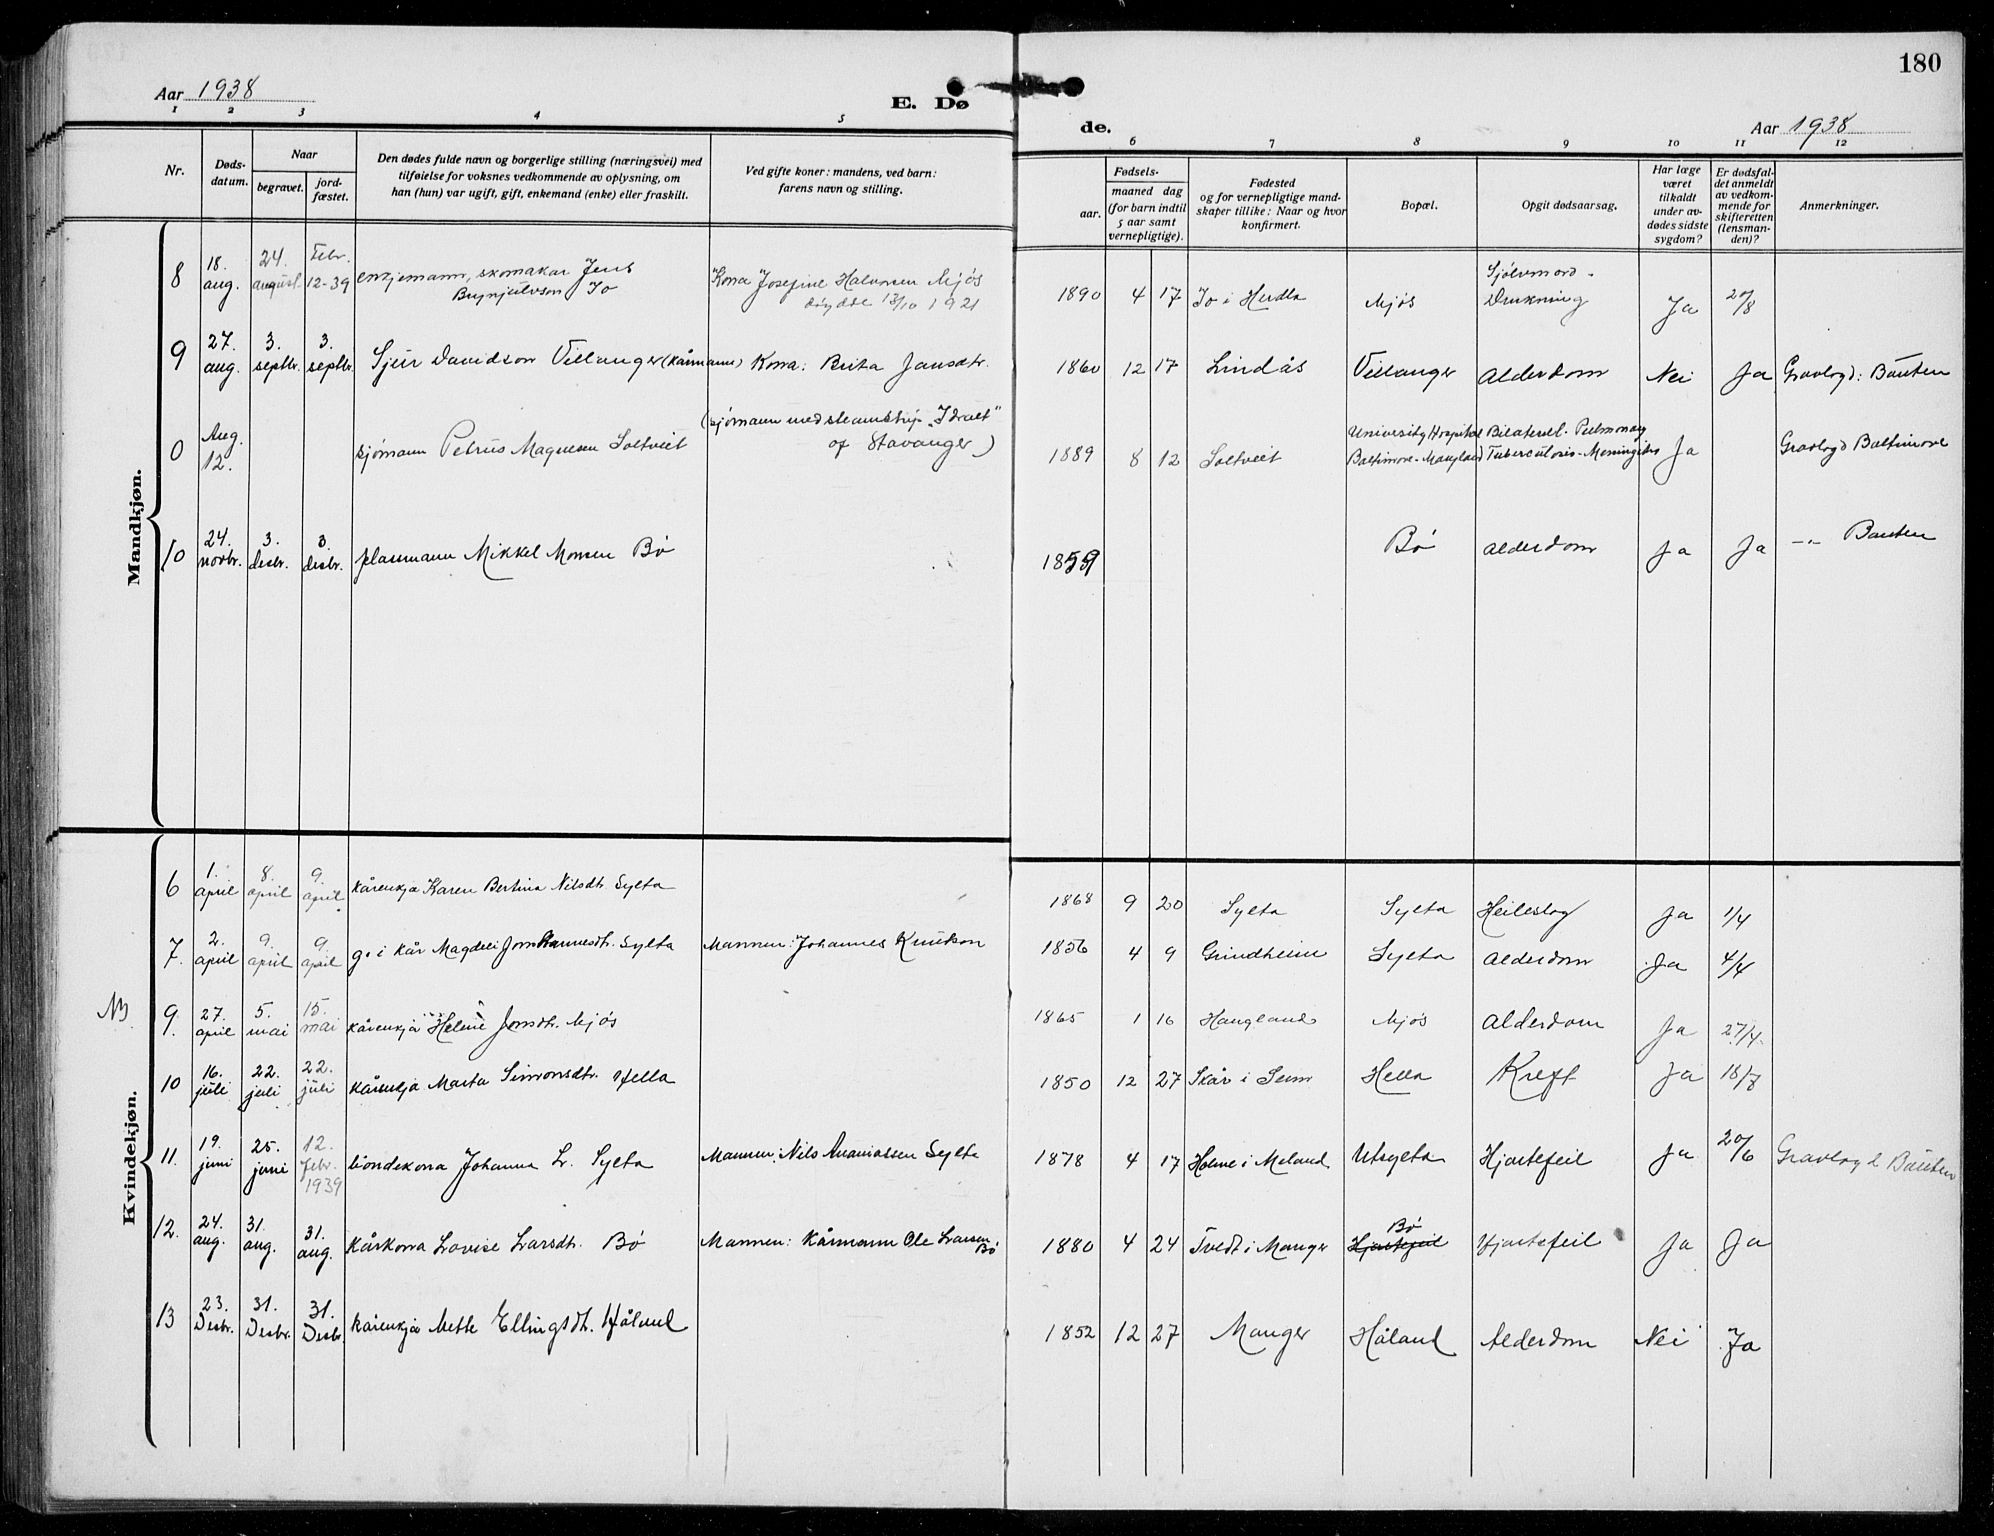 180
Aar 1938
E. Dø
de.
Aar 1938
1 2 3 4 5 6 7 8 9 10 11 12
Nr.
Døds-
datum.
Naar
begravet.
jord-
fæstet.
Den dødes fulde navn og borgerlige stilling (næringsvei) med
tilføielse for voksnes vedkommende av oplysning, om
han (hun) var ugift, gift, enkemand (enke) eller fraskilt.
Ved gifte koner: mandens, ved barn:
farens navn og stilling.
Fødsels-
aar.
maaned dag
(for barn indtil
5 aar samt
vernepligtige).
Fødested
og for vernepligtige mand-
skaper tillike: Naar og hvor
konfirmert.
Bopæl.
Opgit dødsaarsag.
Har læge
været
tilkaldt
under av-
dødes sidste
sygdom?
Er dødsfal-
det anmeldt
av vedkom-
mende for
skifteretten
(lensman-
den)?
Anmerkninger.
Mandkjøn.
8 18. aug. 24. august Febr. 12-39 enkjemann, skomakar Jens Brynjulvson Io Kona Josefine Halvorsen Mjøs døydde 13/10 1921 1890 4 17 Io i Herdla Mjøs Sjølvmord - Drukning Ja 20/8
9 27. aug. 3. septbr. 3. septbr. Sjur Davidson Villanger (kårmann) Kona: Brita Jansdtr. 1860 12 17 Lindås Villanger Alderdom Nei Ja Gravlagd: Bauten
0 Aug. 12. sjømann Petrus Magnesen Soltveit (sjømann med steamship "Idraet" of Stavanger) 1889 8 12 Soltveit University Hospital Baltimore - Maryland Bilateral Pulmonary Tuberculosis - Meningitis Ja Gravlagd Baltimore
10 24. novbr. 3. desbr. 3. desbr. plassmann Mikkel Monsen Bø 1859 Bø Alderdom Ja Ja -"- Bauten
Kvindekjøn.
6 1. april 8. april 9. april kårenkja Karen Bertina Nilsdtr. Sylta 1868 9 20 Sylta Sylta Heileslag Ja 1/4
7. 2. april 9. april 9. april g. i kår Magdeli Johannesdtr. Sylta Mannen: Johannes Knutson 1856 4 9 Grindheim Sylta Alderdom Ja 4/4
NB. 9. 27. april 5. mai 15. mai kårenkja Helene Jonsdtr. Mjøs 1865 1 16 Haugland Mjøs Alderdom Ja 27/4.
10 16. juli 22. juli 22. juli kårenkja Marta Simonsdtr. Hella 1850 12 27 Skår i Seim Hella Kreft Ja 18/7
11. 19. juni 25. juni 12. febr. 1939 bondekona Johanna L. Sylta Mannen: Nils Ananiassen Sylta 1878 4 17 Holme i Meland Utsylta Hjartefeil Ja 20/6 Gravlagd Bauten
12. 24. aug. 31. aug. 31. aug. Kårkona Lovise Larsdtr. Bø Mannen: Kårmann Ole Larsen Bø 1880 4 24 Tvedt i Manger Bø Hjartefeil Hjartefeil Ja Ja
13 23. Desbr. 31. Desbr. 31. Desbr. kårenkja Mette Ellingsdtr. Håland 1852 12 27 Manger Håland Alderdom Nei Ja